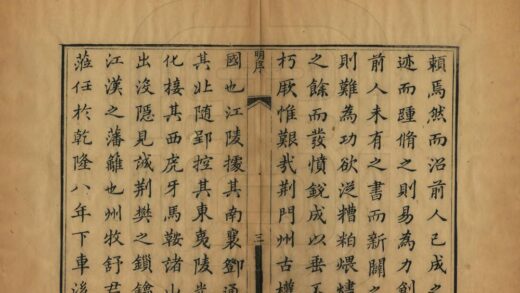 賴焉然而沿前人已成之
迹而踵脩之則易為力創
前人未有之書而新闢之
則難為功欲從糟粕煨燼
之餘而發憤銳成以垂不
朽厥惟艱哉荆門州古權
明序
三
國也江陵據其南襄鄧通
其北隨郢控其東夷陵光
化接其西虎牙馬鞍諸山
出没隱見誠荆樊之鎖鑰
江漢之藩籬也州牧舒君
蒞任於乾隆八年下車後